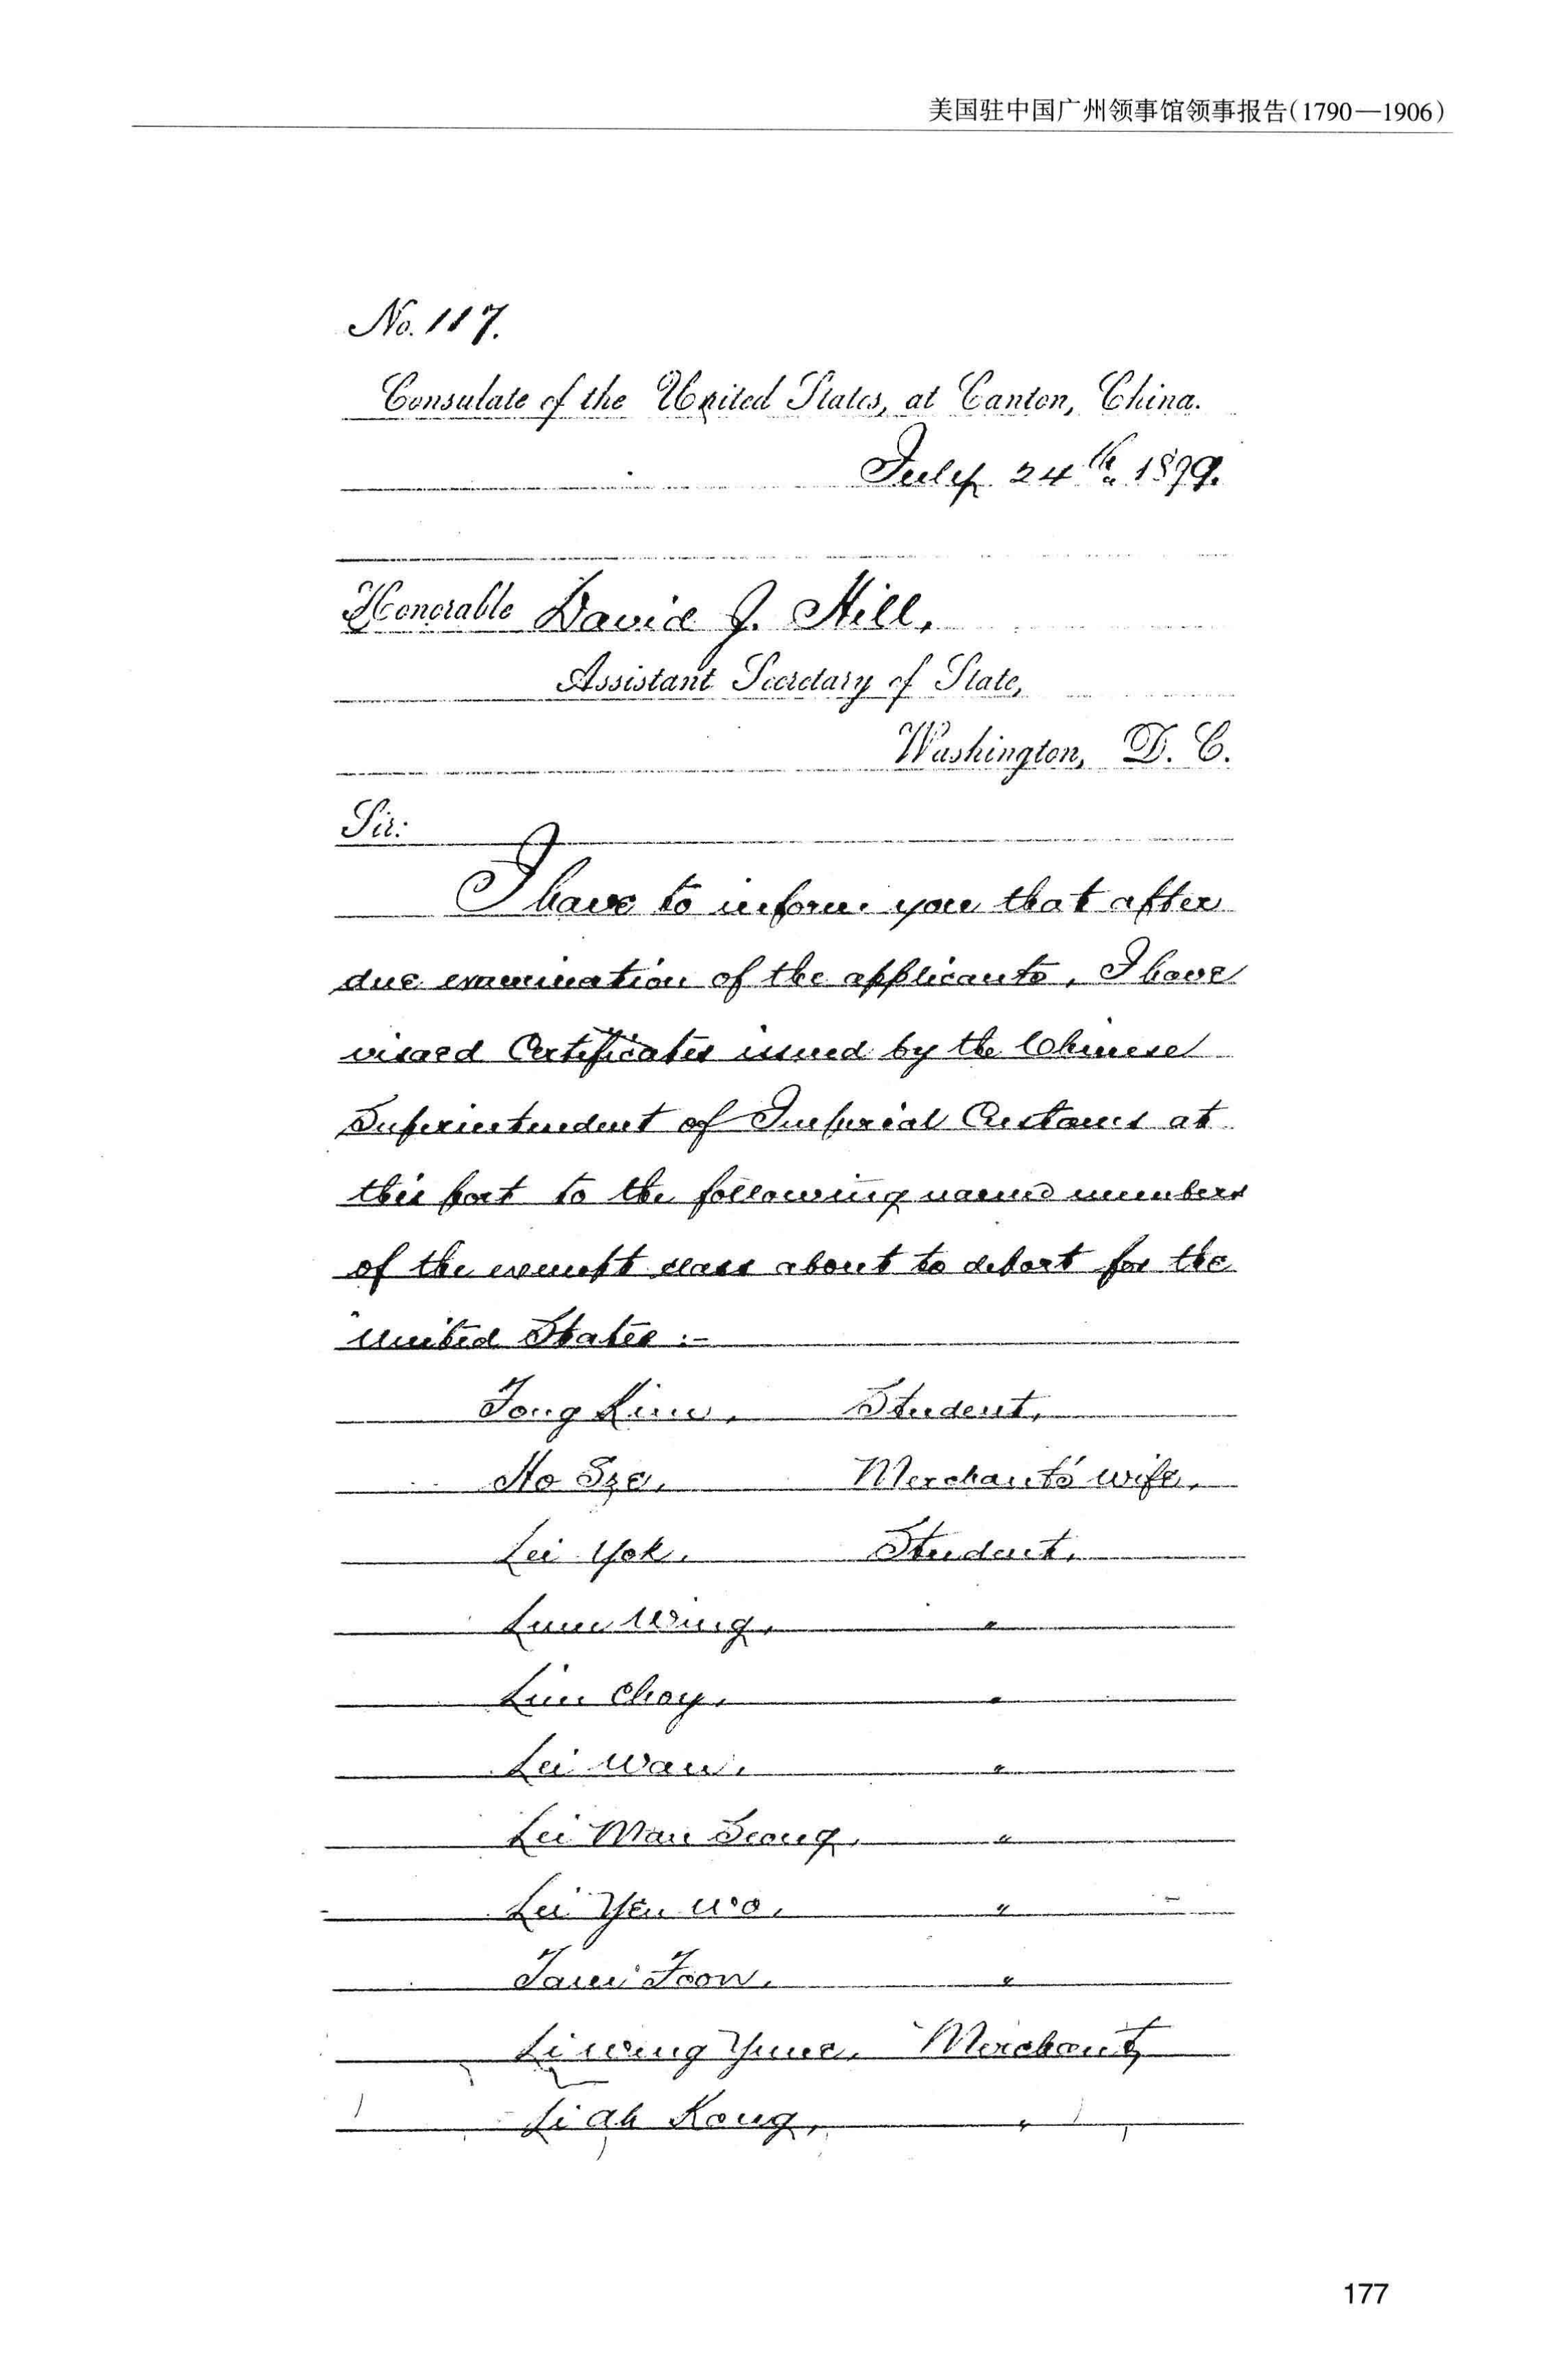 美国驻中国广州领事馆领事报告(1790—1906)
No. 117.
Consulate of the United States, at Canton, China.
July 24th 1899.
Honorable David J. Hill,
Assistant Secretary of State,
Washington, D. C.
Sir:
I have to inform you that after
due examination of the applicants, I have
visaed Certificates issued by the Chinese
Superintendent of Imperial Customs at
this port to the following named members
of the exempt class about to depart for the
United States :-
Tong Kim, Student,
Ho Sze, Merchant's wife,
Lei Yok, Student,
Lum Wing, "
Lim Choy, "
Lei Wan, "
Lei Man Seong, "
Lei Yen Wo, "
Tam Foon, "
Li Wing Yune, Merchant,
Li Ah Kong, "
177